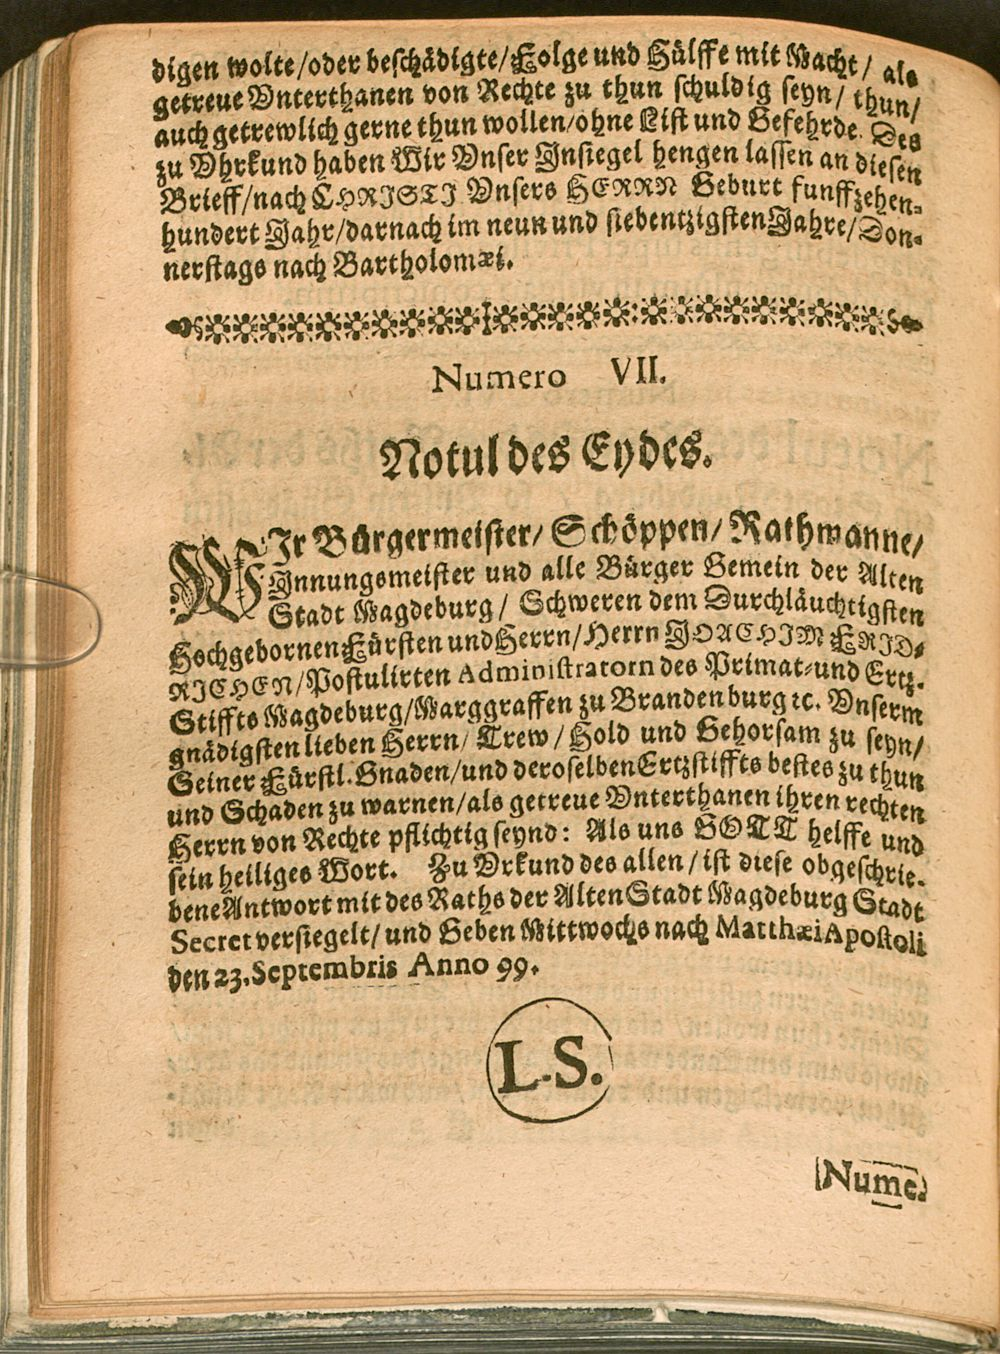 digen wolte/oder beschädigte/Folge und Hülffe mit Macht/ als
getreue Vnterthanen von Rechte zu thun schuldig seyn/ thun/
auch getrewlich gerne thun wollen/ohne List und Gefehrde. Des
zu Vhrkund haben Wir Vnser Insiegel hengen lassen an diesen
Brieff/nach CHRISTI Vnsers HERRN Geburt funffzehen-
hundert Jahr/darnach im neun und siebentzigsten Jahre/Don-
nerstags nach Bartholomæi.
Numero VII.
Notul des Eydes.
WIr Bürgermeister/ Schöppen/ Rathmanne/
Innungsmeister und alle Bürger Gemein der Alten
Stadt Magdeburg/ Schweren dem Durchläuchtigsten
Hochgebornen Fürsten und Herrn/Herrn JOACHIM FRID-
RICHEN/Postulirten Administratorn des Primat-und Ertz-
Stiffts Magdeburg/Marggraffen zu Brandenburg ꝛc. Vnserm
gnädigsten lieben Herrn/ Trew/Hold und Gehorsam zu seyn/
Seiner Fürstl. Gnaden/und deroselben Ertzstiffts bestes zu thun
und Schaden zu warnen/als getreue Vnterthanen ihren rechten
Herrn von Rechte pflichtig seynd: Als uns GOTT helffe und
sein heiliges Wort. Zu Vrkund des allen/ist diese obgeschrie-
bene Antwort mit des Raths der Alten Stadt Magdeburg Stadt
Secret versiegelt/und Geben Mittwochs nach Matthæi Apostoli
den 23. Septembris Anno 99.
L.S.
Nume-